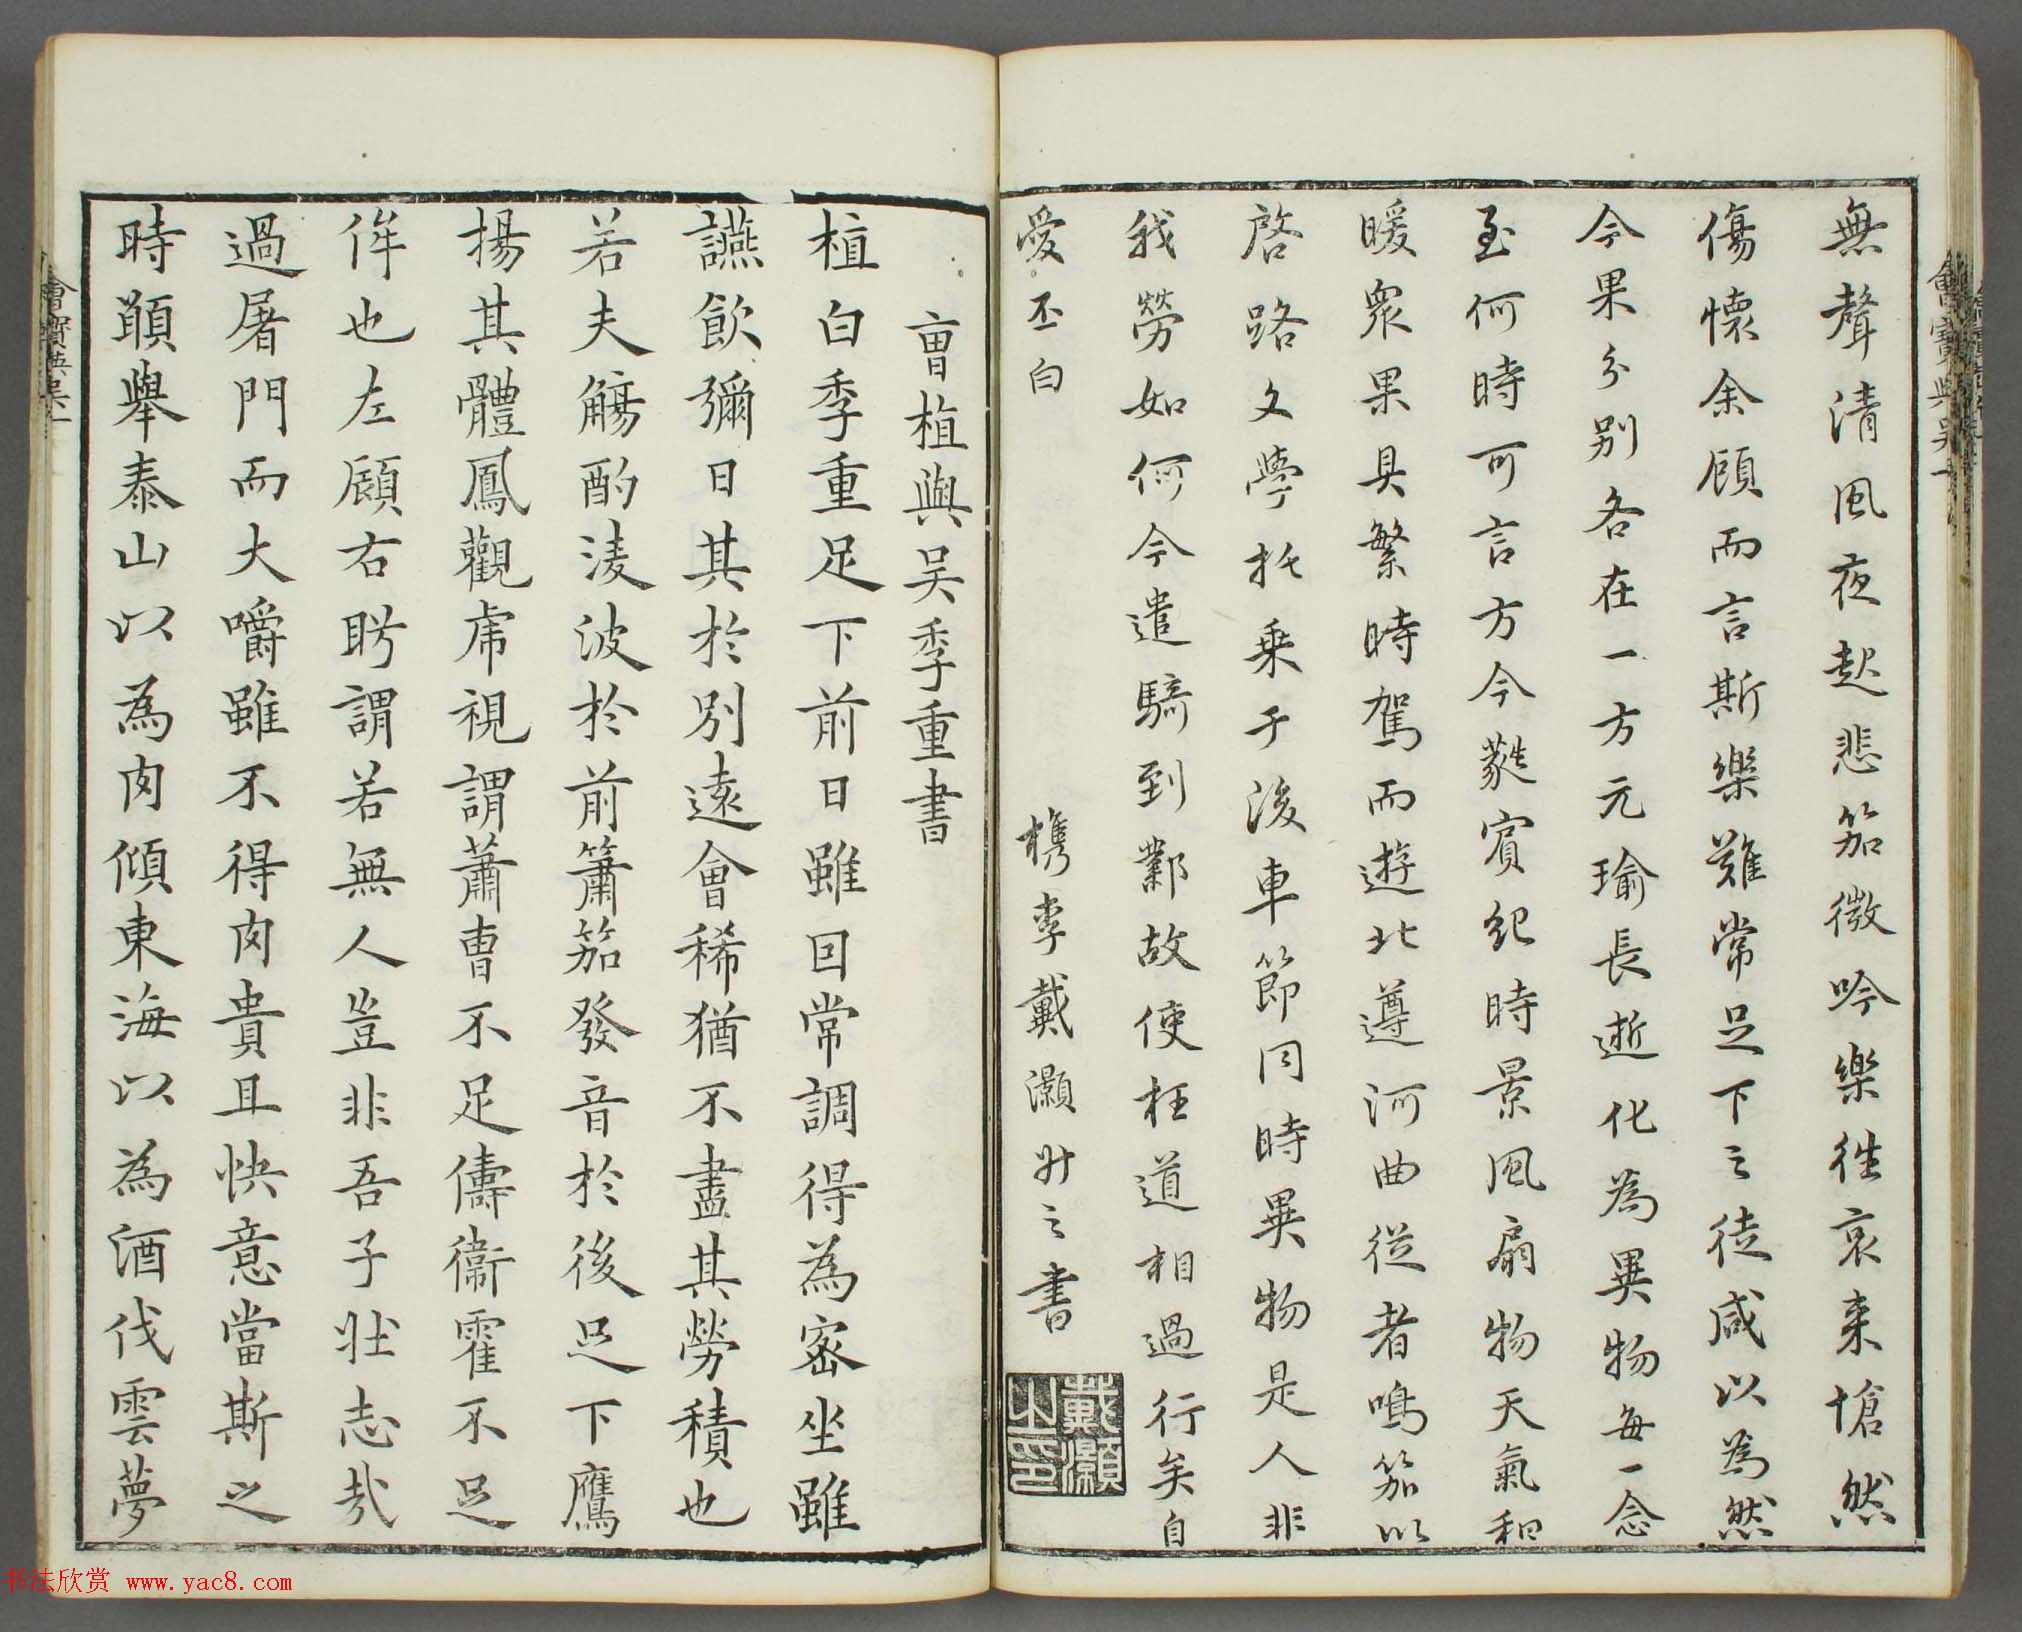 無聲清風夜起悲笳微吟樂徃哀来愴然
傷懷余顧而言斯樂難常足下之徒咸以為然
今果分别各在一方元瑜長逝化為異物每一念
至何時可言方今蕤賓紀時景風扇物天氣和
暖衆果具繁時駕而遊北遵河曲從者鳴笳以
啓路文學托乗于後車節同時異物是人非
我勞如何今遣騎到鄴故使枉道相過行矣自
愛丕白
檇李戴灝升之書
戴灝之印
曺植與吴季重書
植白季重足下前日雖因常調得為密坐雖
讌飲彌日其於别遠會稀猶不盡其勞積也
若夫觴酌淩波於前簫笳發音於後足下鷹
揚其體鳳觀虎視謂蕭曺不足儔衛霍不足
侔也左顧右眄謂若無人豈非吾子壯志哉
過屠門而大嚼雖不得肉貴且快意當斯之
時願舉泰山以為肉傾東海以為酒伐雲夢
书法欣赏 www.yac8.com